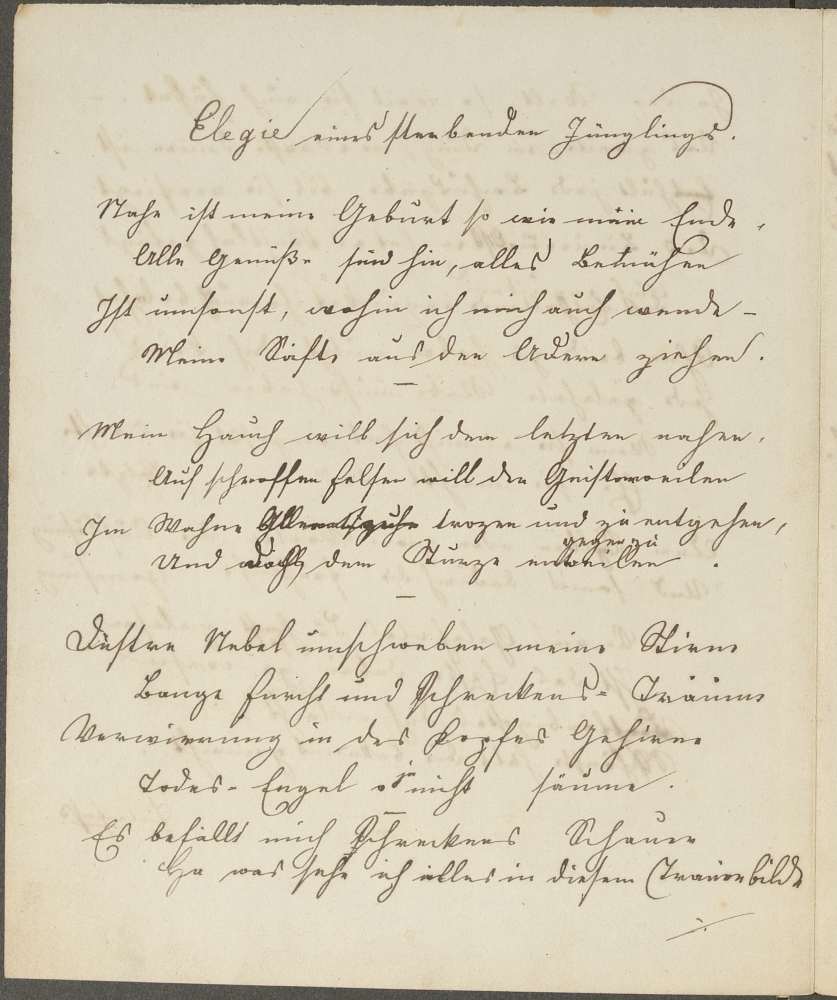 Elegie eines sterbenden Jünglings.
Nahe ist meine Geburt so wie mein Ende,
Alle Genüße sind hin, alles Bemühen
Ist umsonst, wohin ich mich auch wende –
Meine Säfte aus den Adern ziehen.
–
Mein Hauch will sich dem letzten nahen,
Auf schroffen Felsen will der Geist
Im Wahne trozen und zu entgehen,
gegen zu
Und doch dem Sturze enteilen.
–
Düstre Nebel umschweben meine Stirne
Bange Furcht und Schreckens- Träume
Verwirrung in des Kopfes Gehirne
Todes- Engel o nicht säume.
Es befällt mich Schreckens Schauer
Ha was sehe ich alles in diesem Trauerbilde
./.